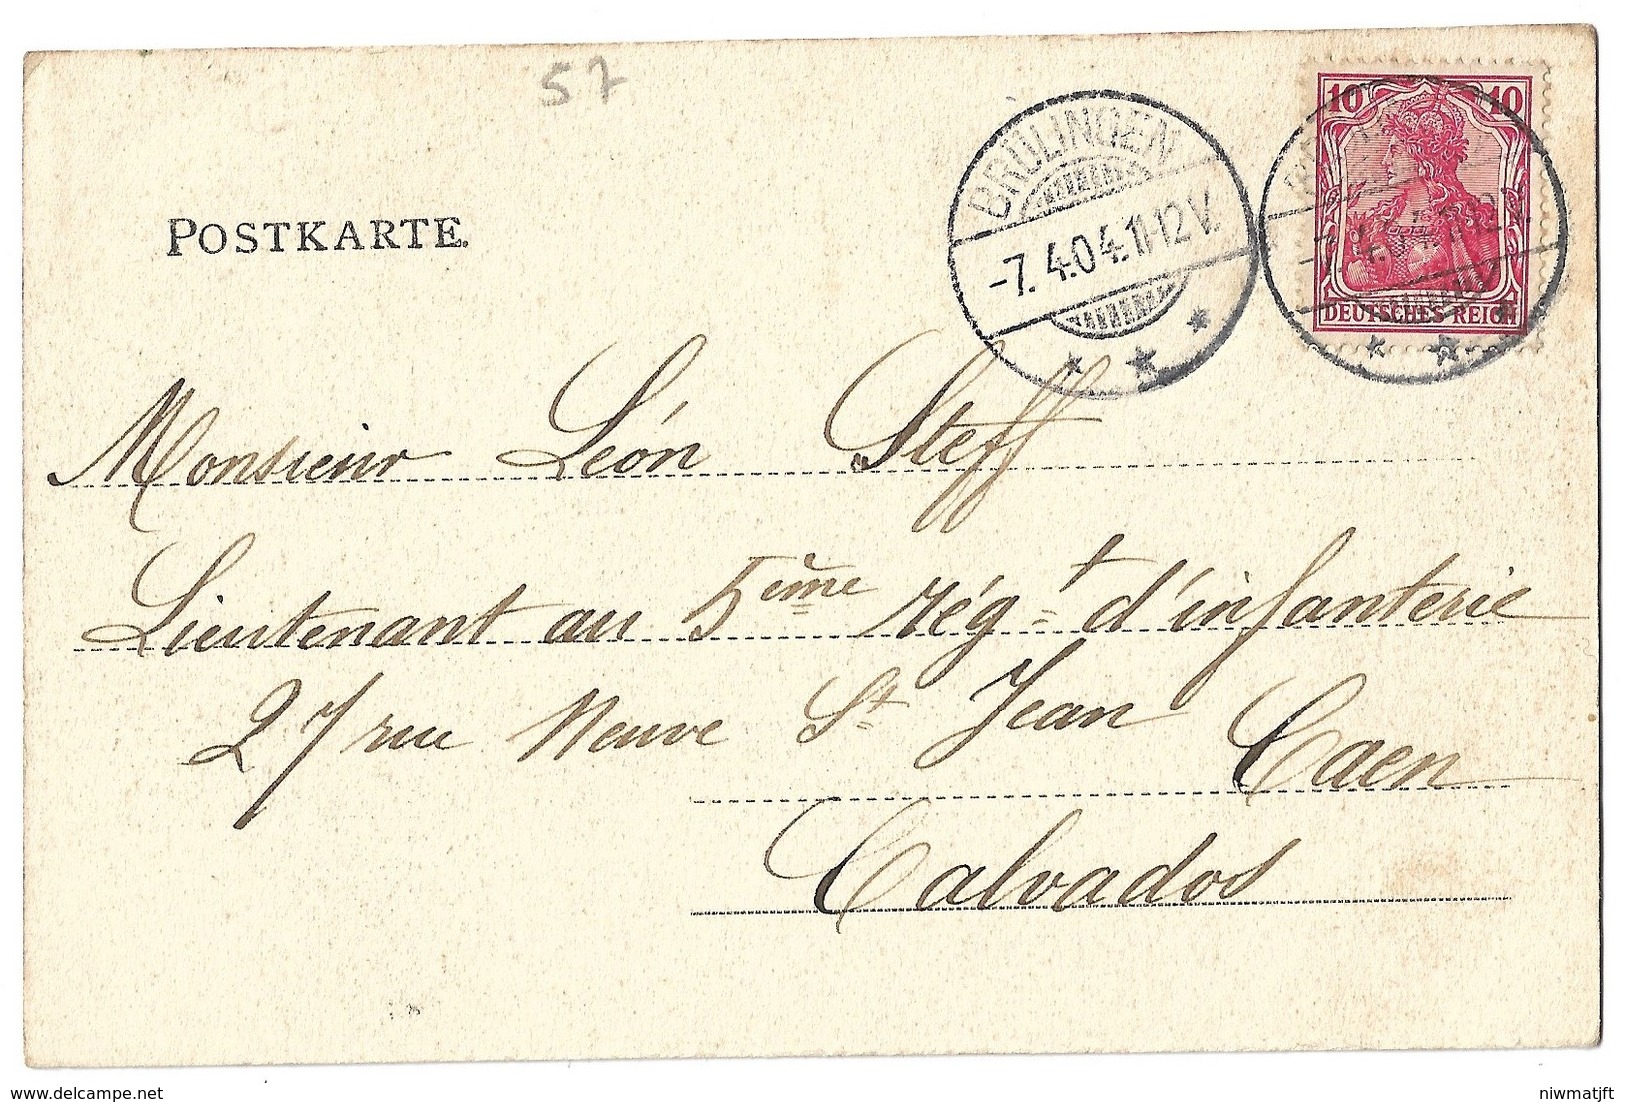 57
10 10
BRÜLINGEN
-7.4.04.11-12V.
DEUTSCHES REICH
POSTKARTE.
Monsieur Léon Steff
Lieutenant au 5ème régt d'infanterie
27 rue Neuve St Jean Caen
Calvados
delcampe.net
niwmatjft